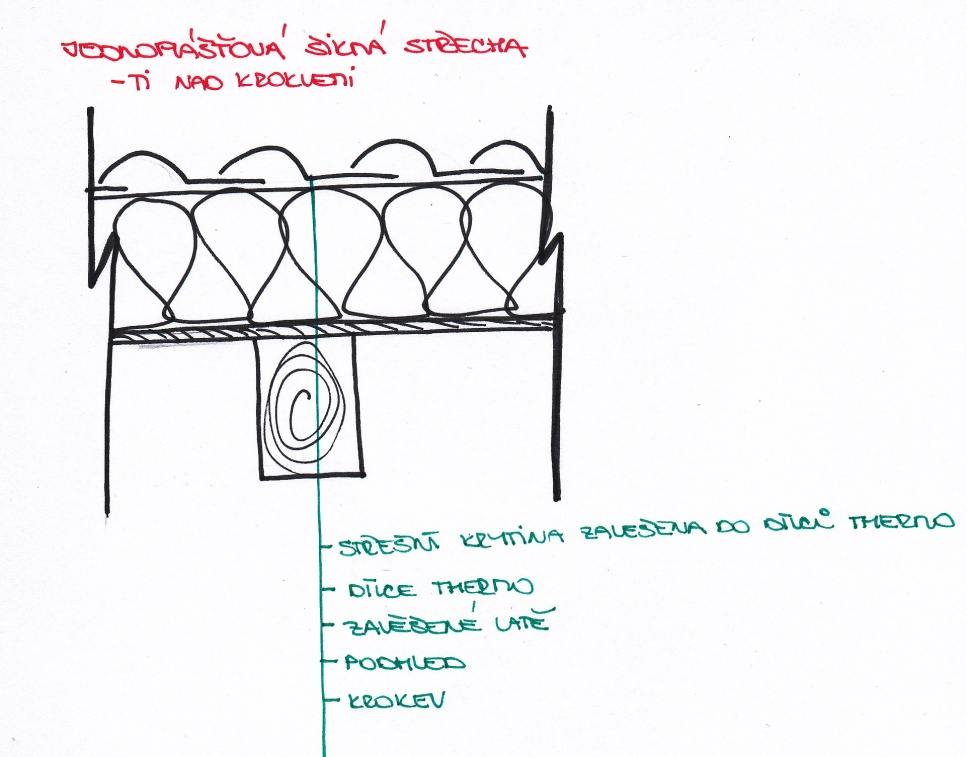 JEDNOPLÁŠŤOVÁ ŠIKMÁ STŘECHA
-TI NAD KROKVEMI
- STŘEŠNÍ KRYTINA ZAVĚŠENA DO DÍLCŮ THERMO
- DÍLCE THERMO
- ZAVĚŠENÉ LATĚ
- PODHLED
- KROKEV